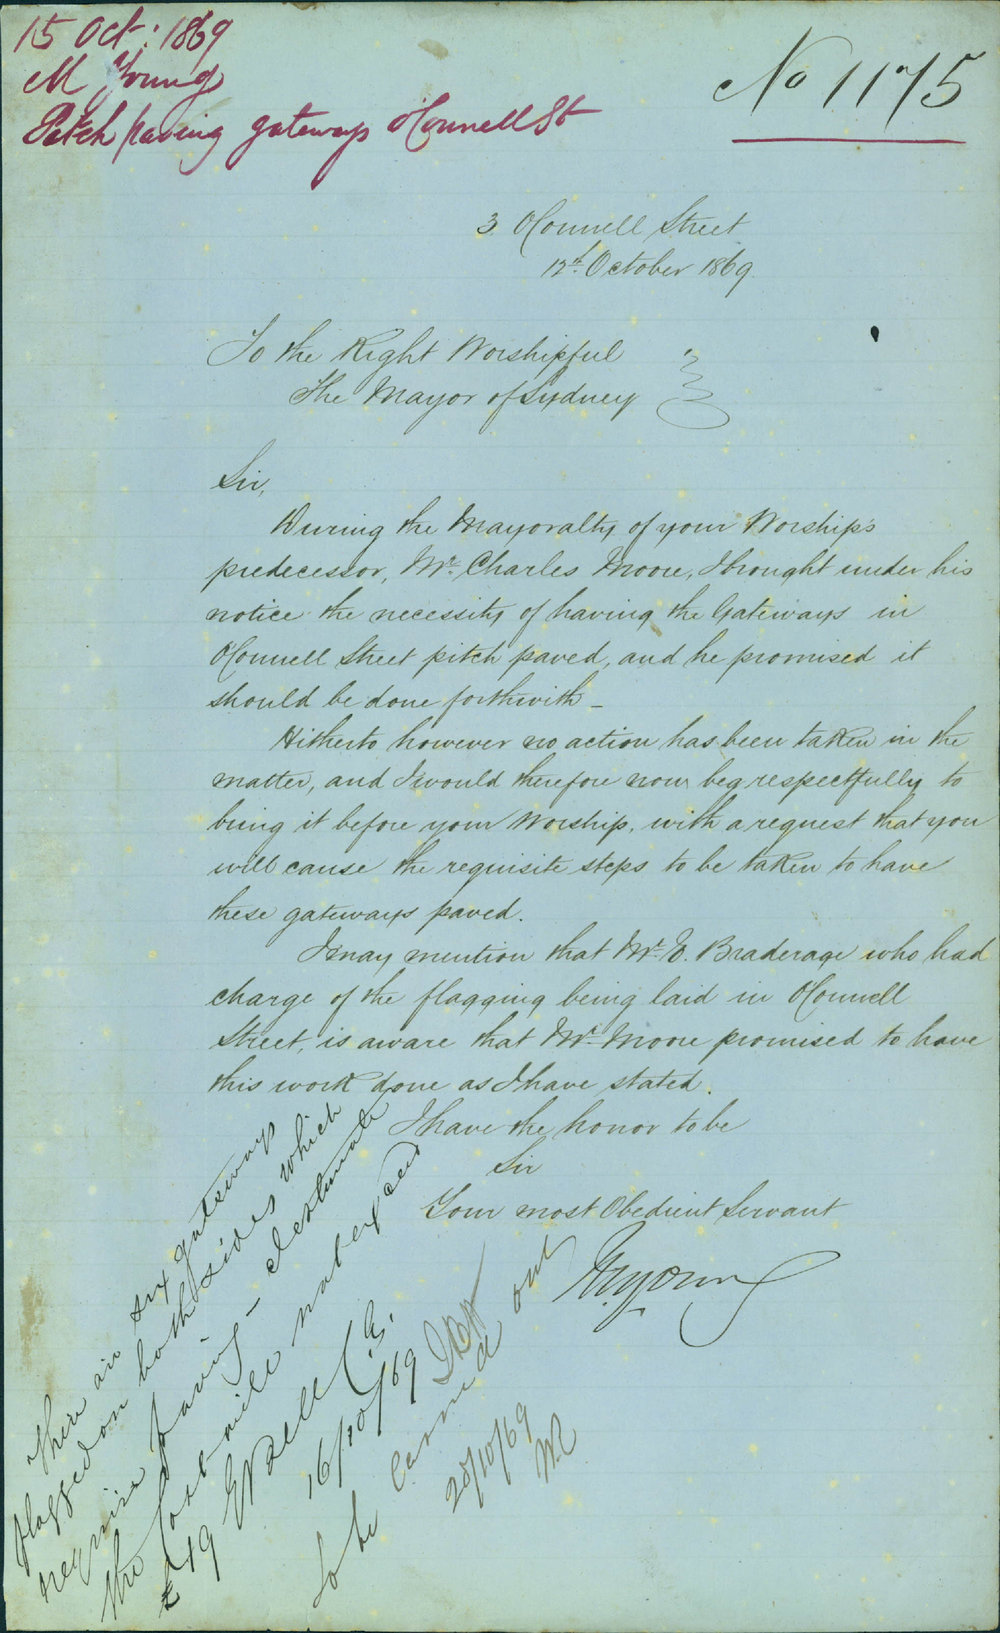 15 Oct: 1869
M Young
Pitch paving gateways OConnell St
No 1175
3 OConnell Street
12th October 1869
To the Right Worshipful
The Mayor of Sydney
Sir,
During the Mayoralty of your Worship's
predecessor, Mr. Charles Moore, I brought under his
notice the necessity of having the Gateways in
OConnell Street pitch paved, and he promised it
should be done forthwith_
Hitherto however no action has been taken in the
matter, and I would therefore now beg respectfully to
bring it before your Worship, with a request that you
will cause the requisite steps to be taken to have
these gateways paved.
I may mention that Mr. E. Braderage who had
charge of the flagging being laid in OConnell
Street, is aware that Mr. Moore promised to have
this work done as I have stated.
I have the honor to be
Sir
Your most Obedient Servant
M Young
There are six gateways
flagged on both sides which
require paving - I estimate
the Cost will not exceed
£19 E Bell C.E.
16/10/69
To be Carried out
20/10/69